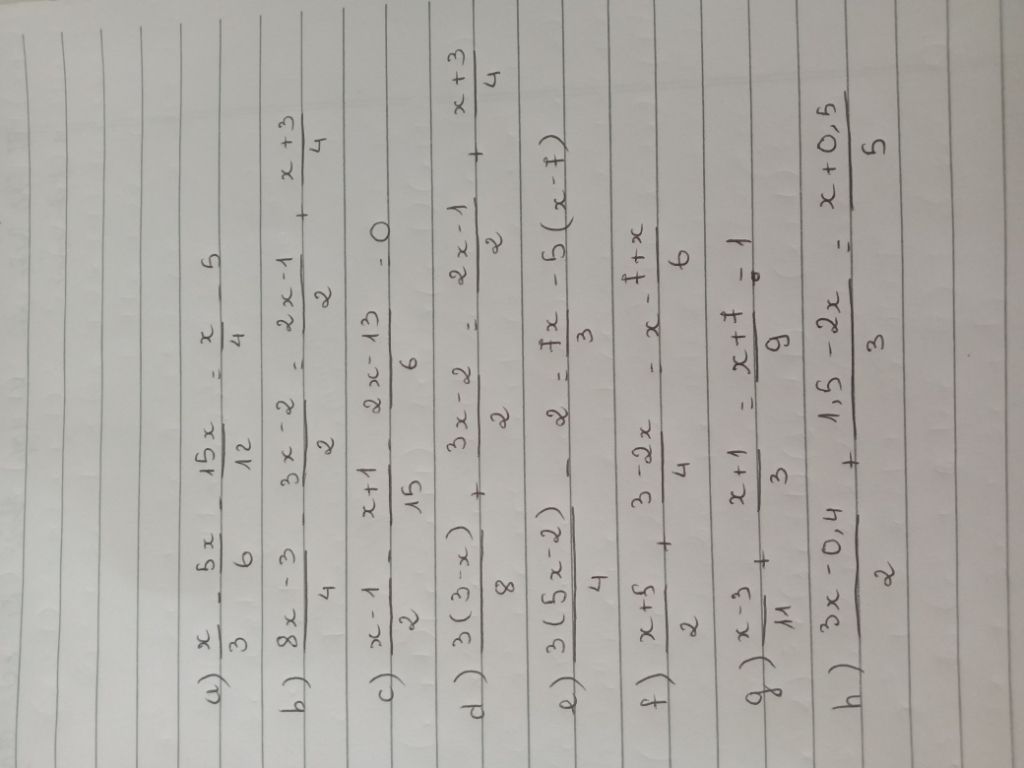 a) x/3 - 5x/6 - 15x/12 = x/4 - 5
b) (8x-3)/4 - (3x-2)/2 = (2x-1)/2 + (x+3)/4
c) (x-1)/2 - (x+1)/15 - (2x-13)/6 = 0
d) 3(3-x)/8 + (3x-2)/2 = (2x-1)/2 + (x+3)/4
e) 3(5x-2)/4 - 2 = 7x/3 - 5(x-7)
f) (x+5)/2 + (3-2x)/4 = x - (7+x)/6
g) (x-3)/11 + (x+1)/3 = (x+7)/9 - 1
h) (3x-0,4)/2 + (1,5-2x)/3 = (x+0,5)/5